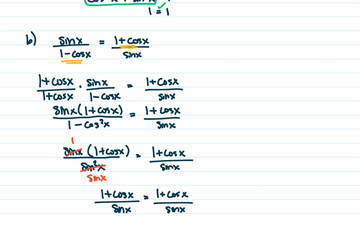 1 = 1
b) sinx/1-cosx = 1+cosx/sinx
1+cosx/1+cosx · sinx/1-cosx = 1+cosx/sinx
sinx(1+cosx)/1-cos²x = 1+cosx/sinx
1 sinx(1+cosx)/sin²x sinx = 1+cosx/sinx
1+cosx/sinx = 1+cosx/sinx